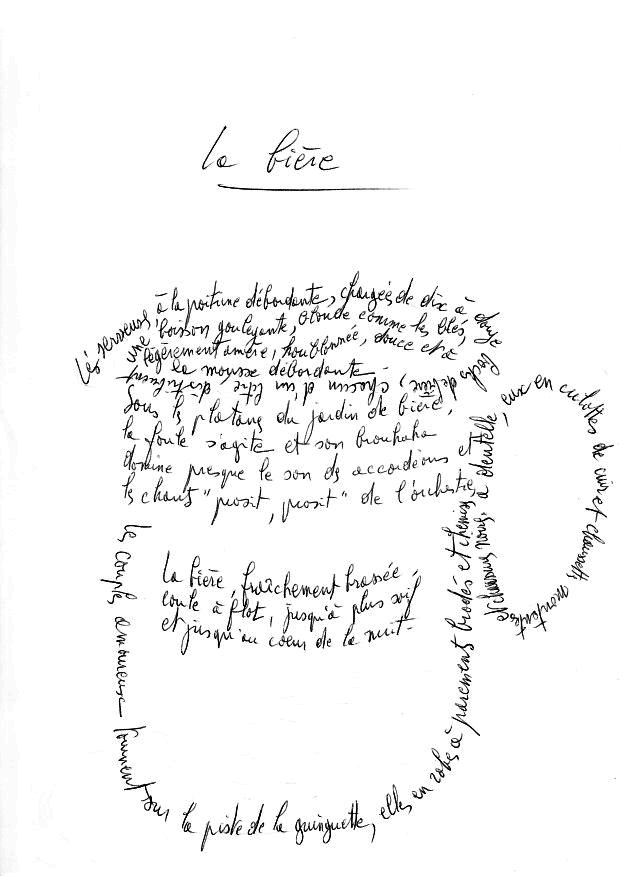 la bière
Les serveuses, à la poitrine débordante, chargées de dix à douze
bocks de bière, chacun d'un litre, distribuent
une boisson gouleyante, blonde comme les blés,
légèrement amère, houblonnée, douce et à
la mousse débordante.
Sous les platanes du jardin de bière,
la foule s'agite et son brouhaha
domine presque le son des accordéons et
les chants "prosit, prosit" de l'orchestre,
La bière, fraîchement brassée,
coule à flot, jusqu'à plus soif
et jusqu'au coeur de la nuit.
les couples amoureux tournent sur la piste de la guinguette, elles en robes à parements brodés et chemises
à dentelle, eux en culottes de cuir et chaussettes montantes
et chaussures